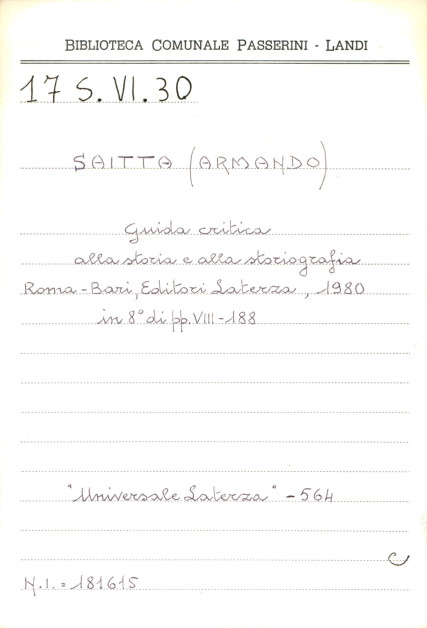 BIBLIOTECA COMUNALE PASSERINI - LANDI
17 S. VI. 30
SAITTA (ARMANDO)
Guida critica
alla storia e alla storiografia
Roma - Bari, Editori Laterza, 1980
in 8° di pp. VIII - 188
"Universale Laterza" - 564
C
N.I. = 181615